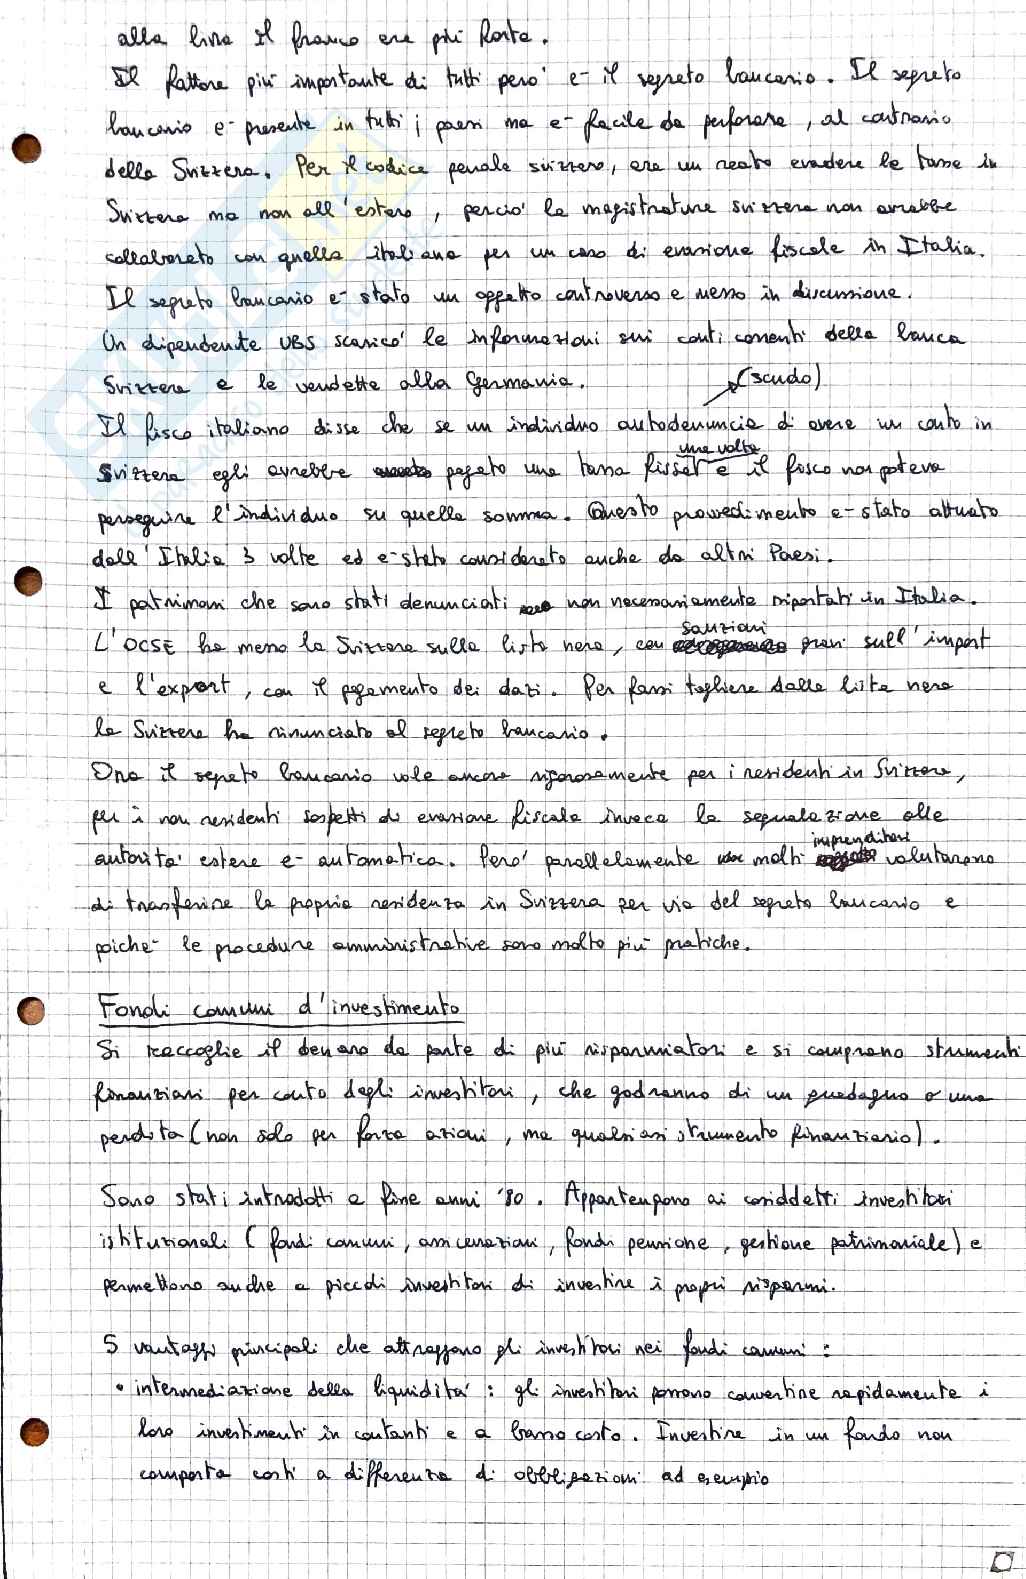 alla lira il franco era più forte.
Il fattore più importante di tutti però è il segreto bancario. Il segreto
bancario è presente in tutti i paesi ma è facile da perforare, al contrario
della Svizzera. Per il codice penale svizzero, era un reato evadere le tasse in
Svizzera ma non all'estero, perciò la magistratura svizzera non avrebbe
collaborato con quella italiana per un caso di evasione fiscale in Italia.
Il segreto bancario è stato un oggetto controverso e messo in discussione.
Un dipendente UBS scaricò le informazioni sui conti correnti della banca
Svizzera e le vendette alla Germania. (scudo)
Il fisco italiano disse che se un individuo autodenuncia di avere un conto in
Svizzera egli avrebbe pagato una tassa fissa una volta e il fisco non poteva
perseguire l'individuo su quella somma. Questo provvedimento è stato attuato
dall'Italia 3 volte ed è stato considerato anche da altri Paesi.
I patrimoni che sono stati denunciati non necessariamente riportati in Italia.
L'OCSE ha messo la Svizzera sulla lista nera, con sanzioni gravi sull'import
e l'export, con il pagamento dei dazi. Per farsi togliere dalla lista nera
la Svizzera ha rinunciato al segreto bancario.
Ora il segreto bancario vale ancora rigorosamente per i residenti in Svizzera,
per i non residenti sospetti di evasione fiscale invece la segnalazione alle
autorità estere è automatica. Però parallelamente molti imprenditori valutarono
di trasferire la propria residenza in Svizzera per via del segreto bancario e
poiché le procedure amministrative sono molto più pratiche.
Fondi comuni d'investimento
Si raccoglie il denaro da parte di più risparmiatori e si comprano strumenti
finanziari per conto degli investitori, che godranno di un guadagno o una
perdita (non solo per forza azioni, ma qualsiasi strumento finanziario).
Sono stati introdotti a fine anni '80. Appartengono ai cosiddetti investitori
istituzionali (fondi comuni, assicurazioni, fondi pensione, gestione patrimoniale) e
permettono anche a piccoli investitori di investire i propri risparmi.
5 vantaggi principali che attraggono gli investitori nei fondi comuni:
• intermediazione della liquidità: gli investitori possono convertire rapidamente i
loro investimenti in contanti e a basso costo. Investire in un fondo non
comporta costi a differenza di obbligazioni ad esempio